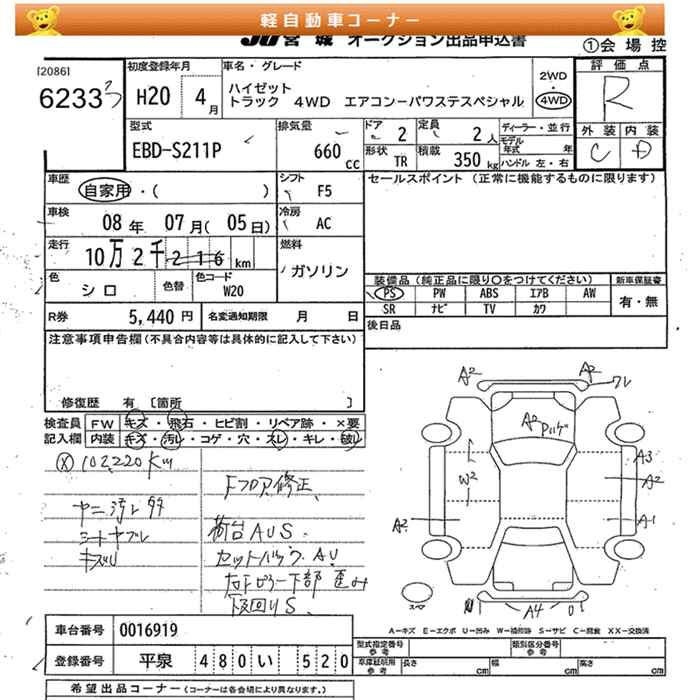 軽自動車コーナー
JU宮城 オークション出品申込書
①会場控
[2086]
6233
初度登録年月
H20 4月
車名・グレード
ハイゼット
トラック 4WD エアコンーパワステスペシャル
2WD
4WD
評価点
R
外装 内装
C D
型式
EBD-S211P
排気量
660 cc
ドア 2
定員 2人
形状 TR
積載 350kg
ディーラー・並行
モデル年式 年
ハンドル 左・右
車歴
自家用・( )
シフト
F5
セールスポイント (正常に機能するものに限ります)
車検
08年 07月(05日)
冷房
AC
走行
10万2千216km
燃料
ガソリン
色
シロ
色替
色コード
W20
装備品(純正品に限り○をつけてください)
新車保証書
PS PW ABS エアB AW
有・無
SR ナビ TV カワ
R券 5,440円
名変通知期限 月 日
後日品
注意事項申告欄(不具合内容等は具体的に記入して下さい)
修復歴 有 [箇所 ]
検査員 FW キズ・飛石・ヒビ割・リペア跡・×要
記入欄 内装 キズ・汚レ・コゲ・穴・スレ・キレ・破レ
102,220Km
Fフロア修正
ヤニ汚レ
シートヤブレ
荷台AUS
セットバック AU
下部歪み
下回りS
A2 A2
A2
W2
A3
A2
A2
A1
A4
スペア
A-キズ E-エクボ U-凹み W-補修跡 S-サビ C-腐食 XX-交換済
車台番号 0016919
登録番号 平泉 480 い 520
型式指定番号 参考
類別区分番号 参考
車庫証明用 参考 長さ cm 幅 cm 高さ cm
希望出品コーナー(コーナーは各会場により異なります。)